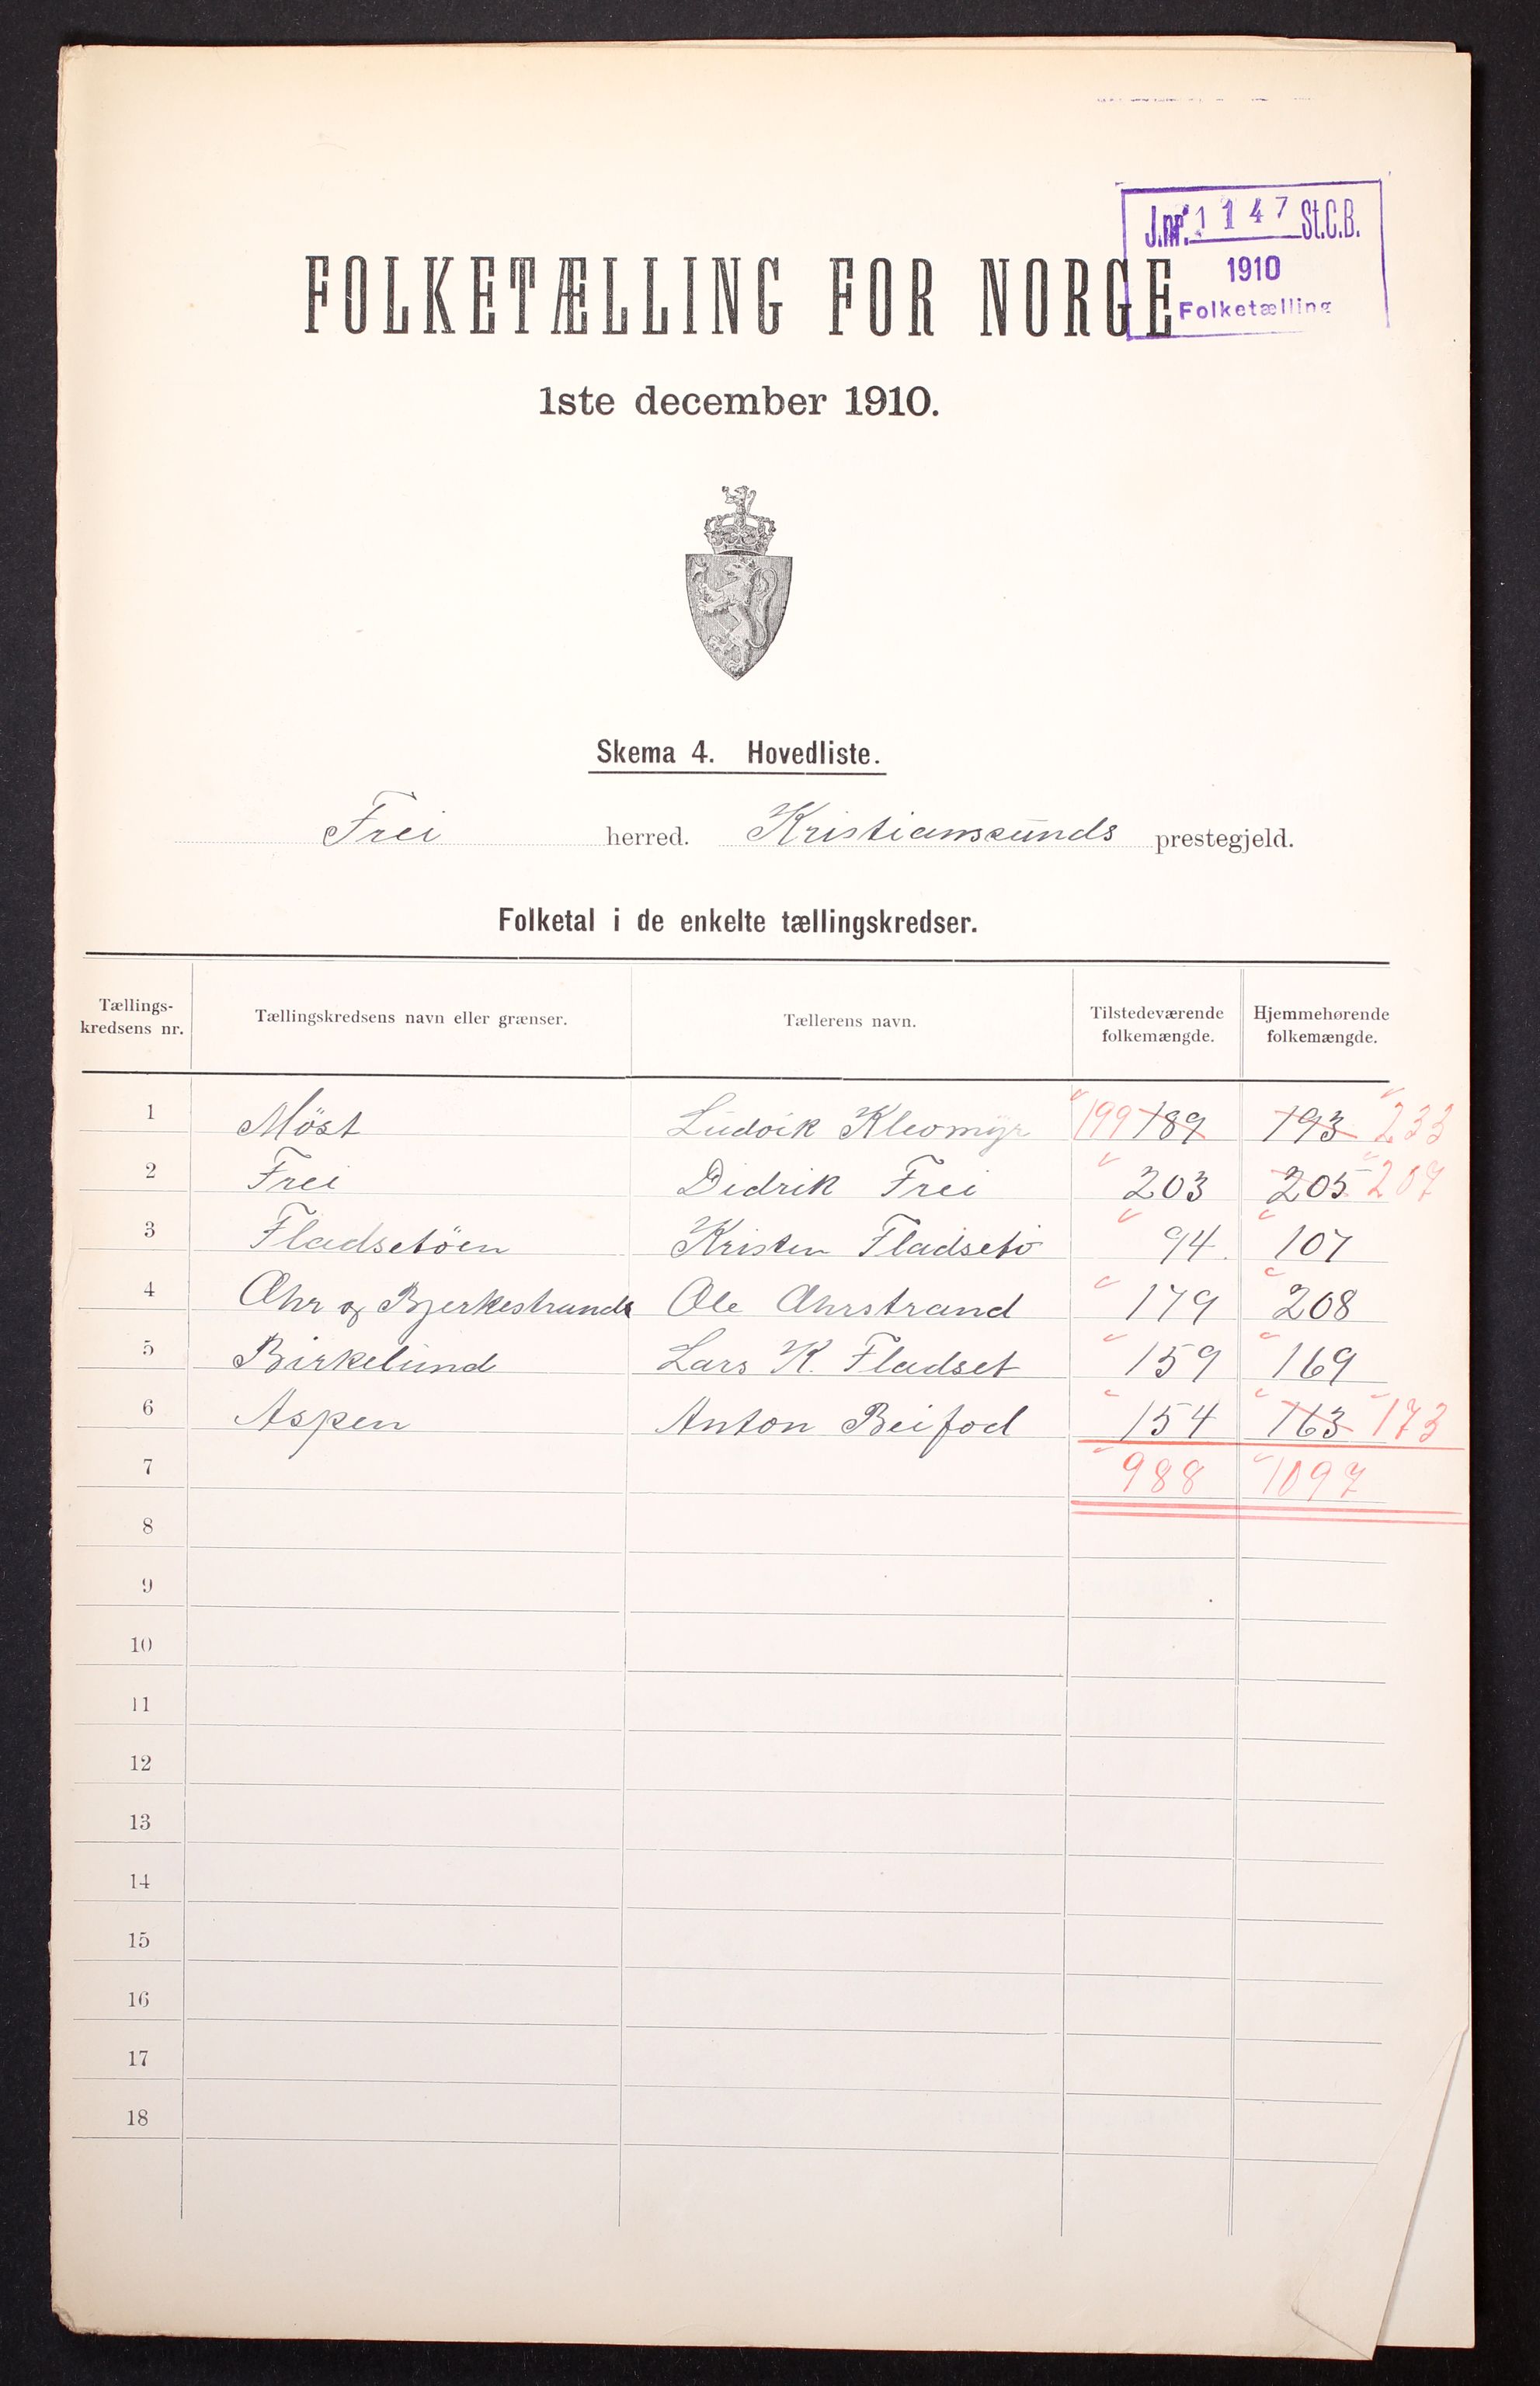 J.nr. 1147 St.C.B.
1910
Folketælling
FOLKETÆLLING FOR NORGE
1ste december 1910.
Skema 4. Hovedliste.
Frei herred. Kristiansunds prestegjeld.
Folketal i de enkelte tællingskredser.
Tællings-kredsens nr. Tællingskredsens navn eller grænser. Tællerens navn. Tilstedeværende folkemængde. Hjemmehørende folkemængde.
1 Möst Ludvik Kleomyr 199 189 193 233
2 Frei Didrik Frei 203 205 207
3 Fladsetöen Kristen Fladsetö 94 107
4 Æhr og Bjerkestrand Ole Æhrstrand 179 208
5 Birkelund Lars K. Fladset 159 169
6 Aspen Anton Beifod 154 163 173
7 988 1097
8
9
10
11
12
13
14
15
16
17
18